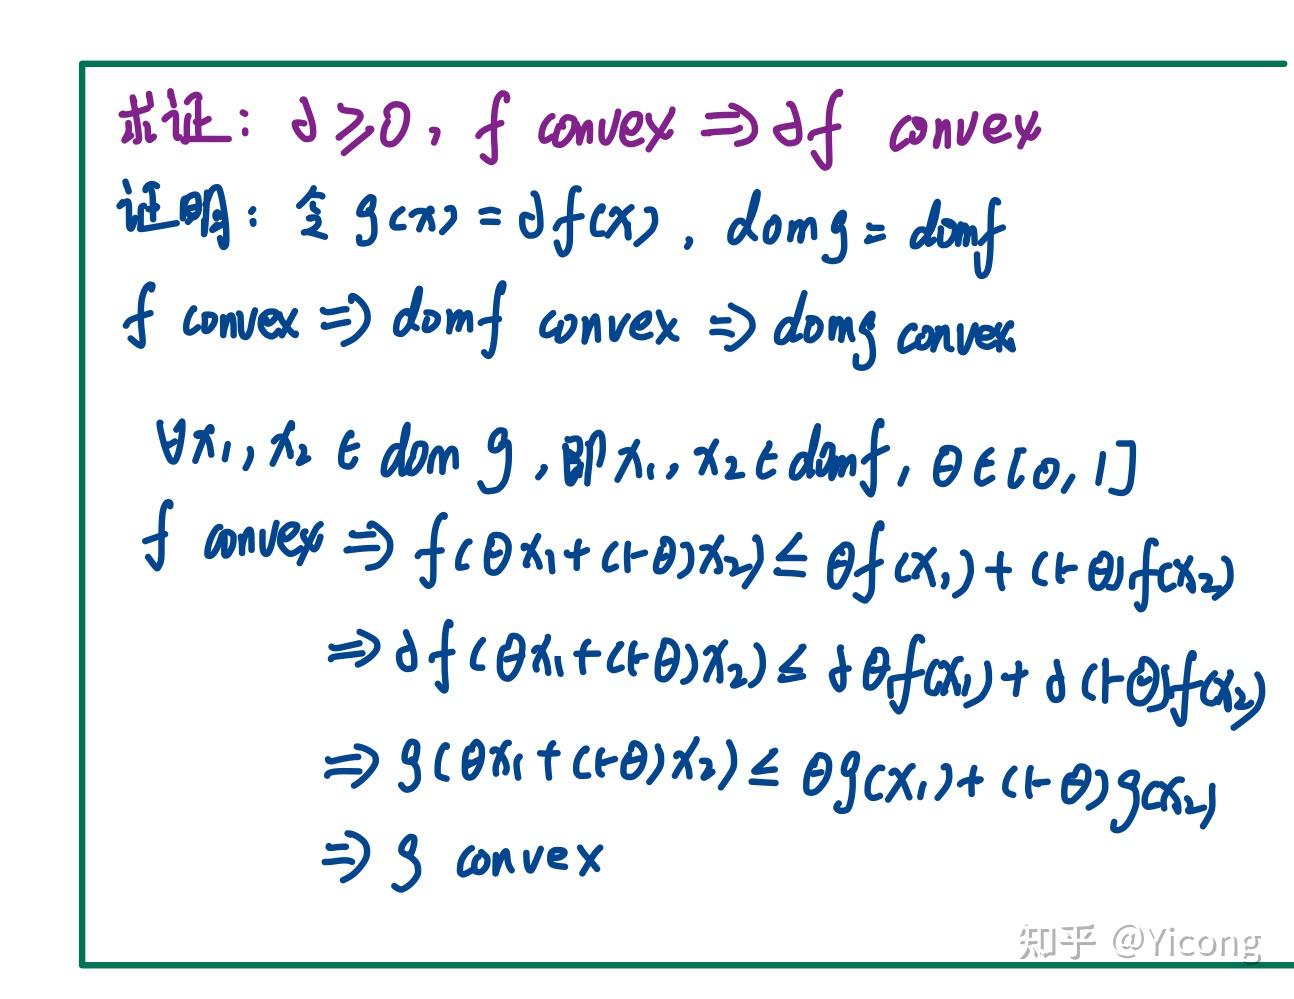 求证: ∂≥0, f convex ⇒ ∂f convex
证明: 令 g(x) = ∂f(x), dom g = dom f
f convex ⇒ dom f convex ⇒ dom g convex
∀x₁, x₂ ∈ dom g, 即 x₁, x₂ ∈ dom f, θ ∈ [0, 1]
f convex ⇒ f(θx₁+(1-θ)x₂) ≤ θf(x₁) + (1-θ)f(x₂)
⇒ ∂f(θx₁+(1-θ)x₂) ≤ ∂θf(x₁) + ∂(1-θ)f(x₂)
⇒ g(θx₁+(1-θ)x₂) ≤ θg(x₁) + (1-θ)g(x₂)
⇒ g convex
知乎 @Yicong